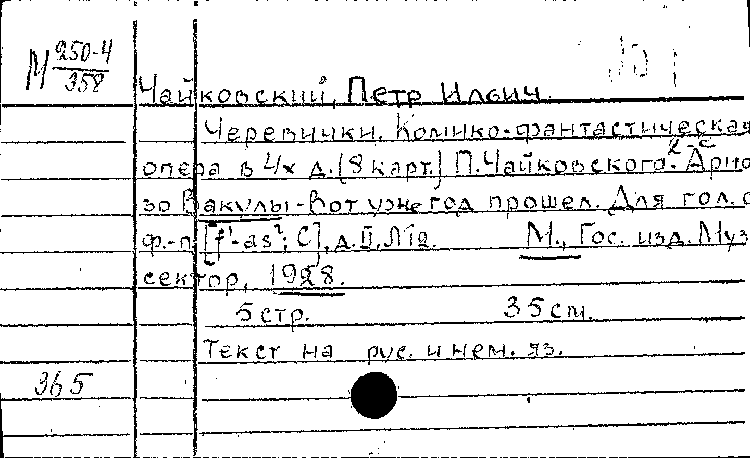 М 250-4
358
Чайковский, Петр Ильич.
Черевички. Комико-фантастическая
опера в 4х д. (8 карт.) П. Чайковского. Арио
зо Вакулы - Вот уже год прошел. Для гол. с
ф.-п. [f¹-as²; C], д. II, №12. М., Гос. изд. Муз
сектор, 1928.
5 стр. 35 см.
Текст на рус. и нем. яз.
365